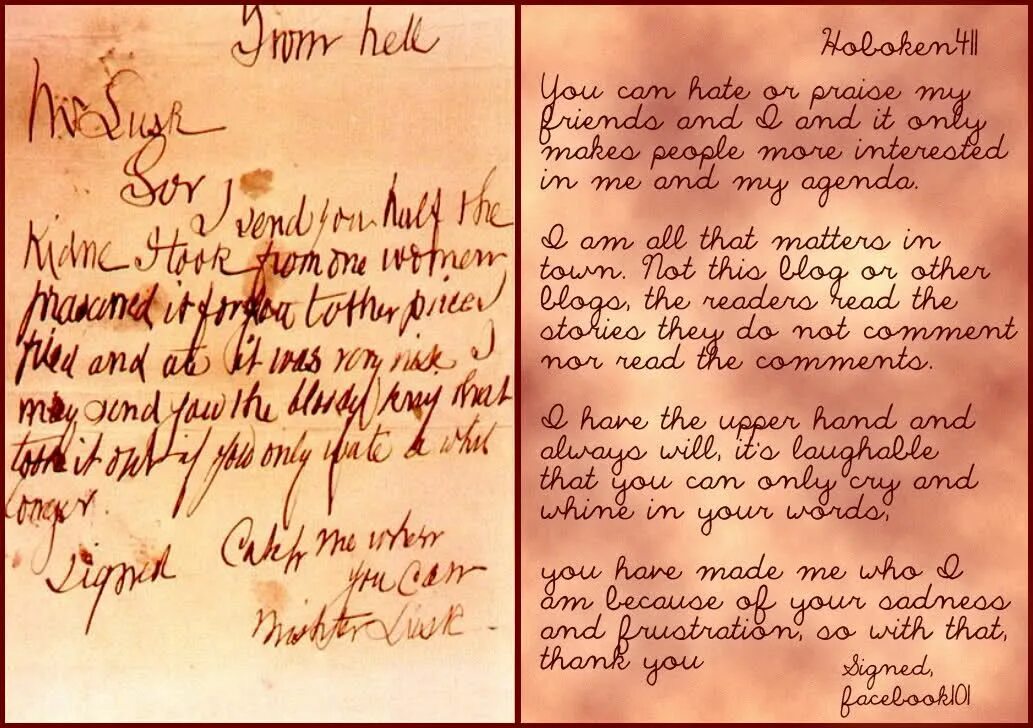 From hell
Mr Lusk
Sor
I send you half the
Kidne I took from one women
prasarved it for you tother piece I
fried and ate it was very nise I
may send you the bloody knif that
took it out if you only wate a whil
longer.
Signed Catch me when
you Can
Mishter Lusk
Hoboken411
You can hate or praise my
friends and I and it only
makes people more interested
in me and my agenda.
I am all that matters in
town. Not this blog or other
blogs, the readers read the
stories they do not comment
nor read the comments.
I have the upper hand and
always will, it's laughable
that you can only cry and
whine in your words,
you have made me who I
am because of your sadness
and frustration, so with that,
thank you
Signed,
facebook101